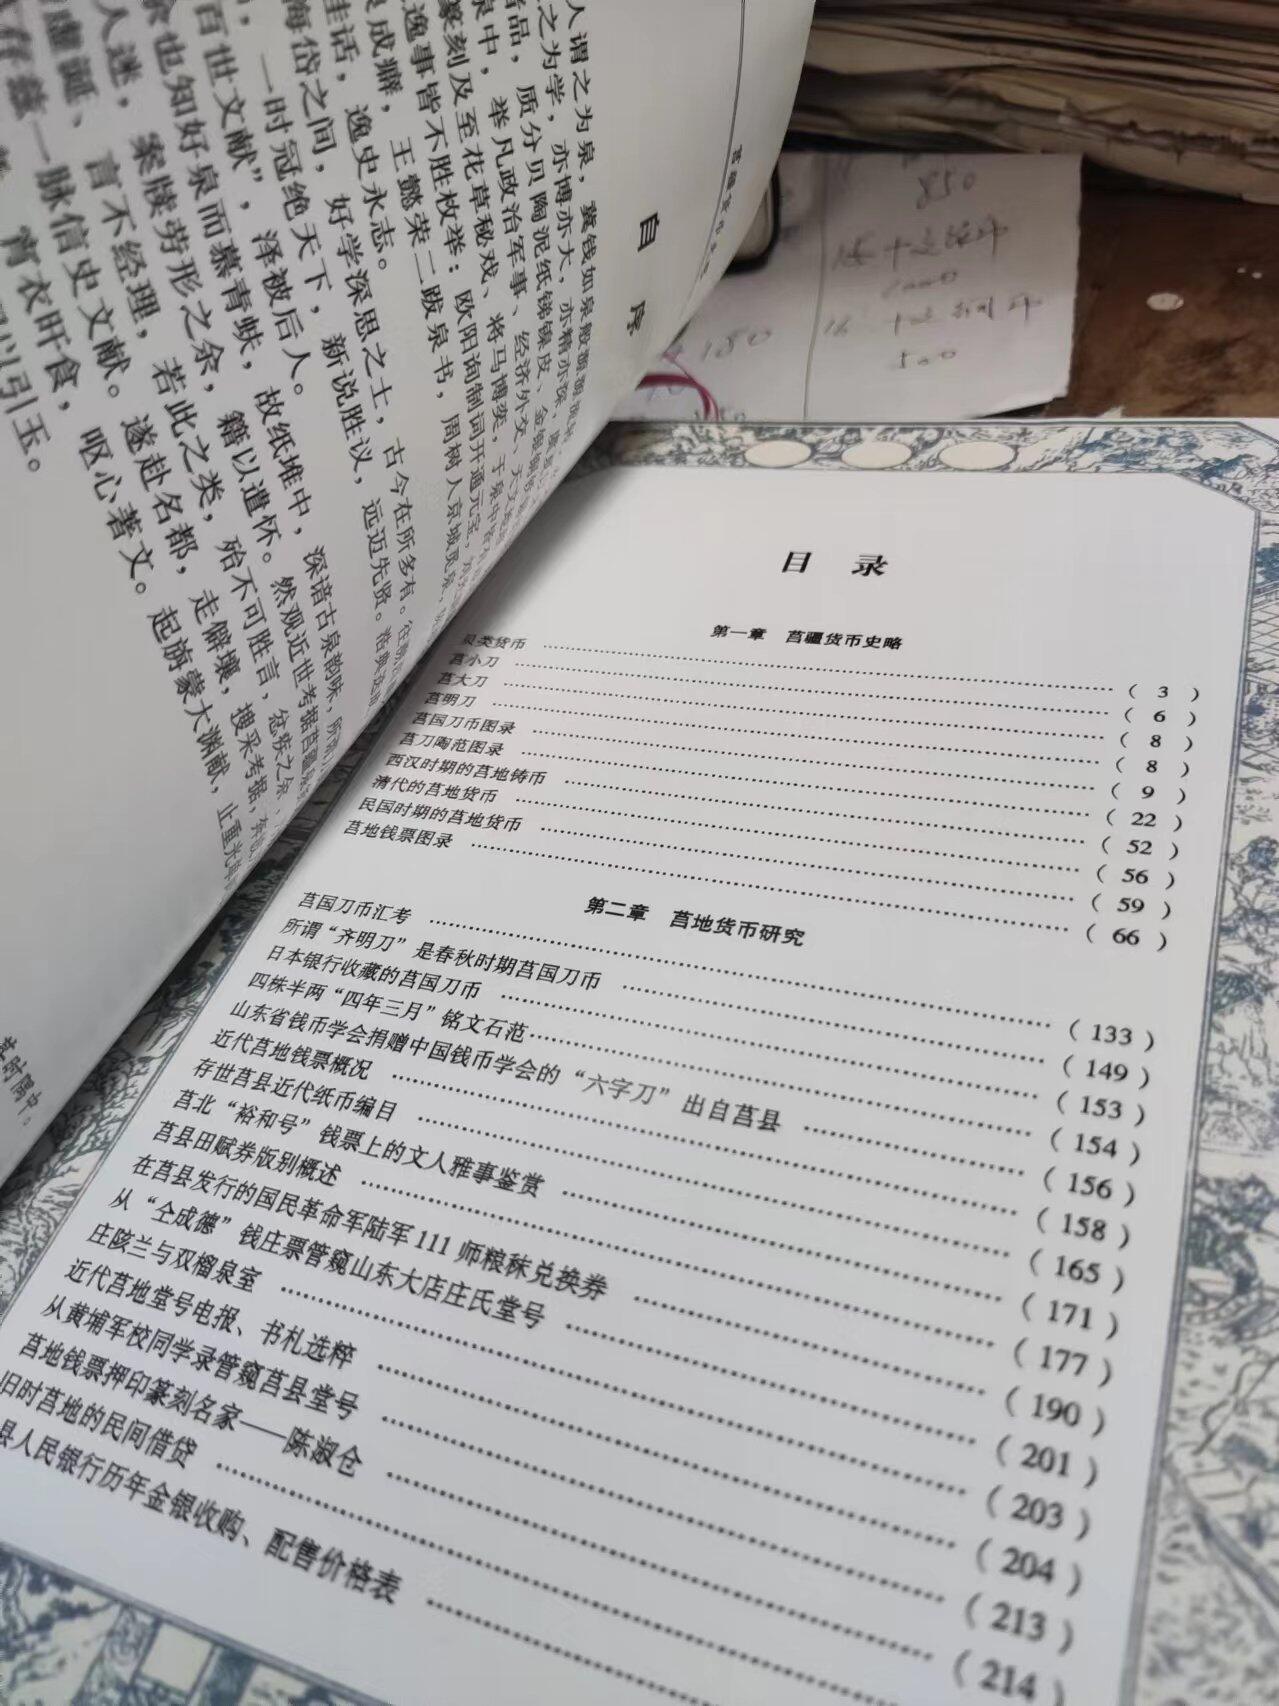 自 序
人谓之为泉，冀钱如泉般源源
之为学，亦博亦大，亦精亦深，
品，质分贝陶泥纸锑镍皮、金银
泉中，举凡政治军事、经济外交、天文
篆刻及至花草秘戏、将马博奕，于泉中
逸事皆不胜枚举：欧阳询制词开通元宝，
成癖，王懿荣二跋泉书，周树人京城觅泉，
佳话，逸史永志。
海岱之间，好学深思之士，古今在所多有。
，一时冠绝天下，新说胜议，远迈先贤。
百世文献”，泽被后人。
也知好泉而慕青蚨，故纸堆中，深谙古泉韵味，所
人迷，案牍劳形之余，籍以遣怀。然观近世考据莒疆
虚诞、言不经理，若此之类，殆不可胜言，忿疾之余，
存继一脉信史文献。遂赴名都，走僻壤，搜采考据，
宵衣旰食，呕心著文。起旃蒙大渊献，止重光
以引玉。
850
2000
500
180
目 录
第一章 莒疆货币史略
贝类货币 ……( 3 )
莒小刀 ……( 6 )
莒大刀 ……( 8 )
莒明刀 ……( 8 )
莒国刀币图录 ……( 9 )
莒刀陶范图录 ……( 22 )
西汉时期的莒地铸币 ……( 52 )
清代的莒地货币 ……( 56 )
民国时期的莒地货币 ……( 59 )
莒地钱票图录 ……( 66 )
第二章 莒地货币研究
莒国刀币汇考 ……( 133 )
所谓“齐明刀”是春秋时期莒国刀币 ……( 149 )
日本银行收藏的莒国刀币 ……( 153 )
四株半两“四年三月”铭文石范……( 154 )
山东省钱币学会捐赠中国钱币学会的“六字刀”出自莒县 ……( 156 )
近代莒地钱票概况 ……( 158 )
存世莒县近代纸币编目 ……( 165 )
莒北“裕和号”钱票上的文人雅事鉴赏 ……( 171 )
莒县田赋券版别概述 ……( 177 )
在莒县发行的国民革命军陆军 111 师粮秣兑换券 ……( 190 )
从“仝成德”钱庄票管窥山东大店庄氏堂号 ……( 201 )
庄陔兰与双榴泉室 ……( 203 )
近代莒地堂号电报、书札选粹 ……( 204 )
从黄埔军校同学录管窥莒县堂号 ……( 213 )
莒地钱票押印篆刻名家——陈淑仓 ……( 214 )
旧时莒地的民间借贷 ……
县人民银行历年金银收购、配售价格表 ……